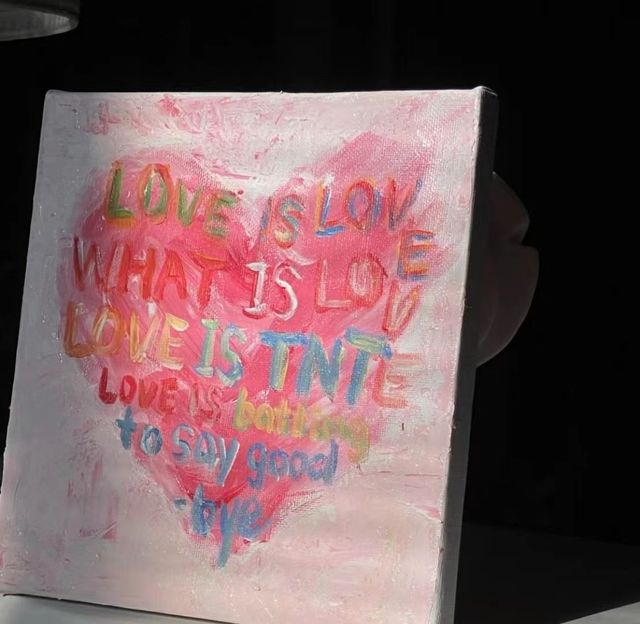 LOVE IS LOVE
WHAT IS LOVE
LOVE IS TNT
LOVE IS
to say good
-bye